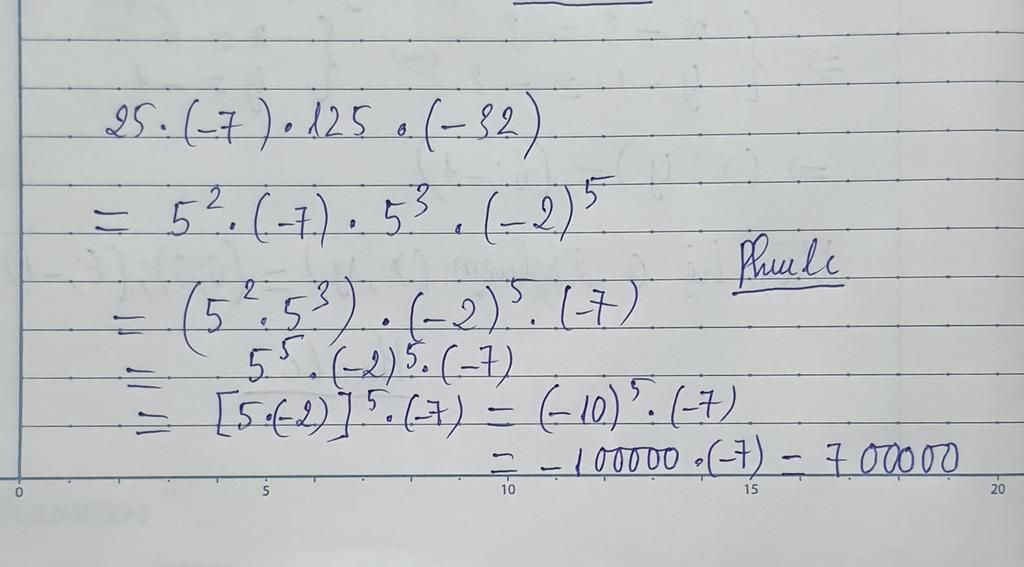 25 . (-7) . 125 . (-32)
= 5² . (-7) . 5³ . (-2)⁵
= (5² . 5³) . (-2)⁵ . (-7)
= 5⁵ . (-2)⁵ . (-7)
= [5.(-2)]⁵ . (-7) = (-10)⁵ . (-7)
= -100000 . (-7) = 700000
0 5 10 15 20